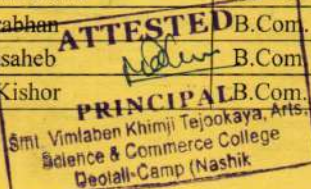 rabhan B.Com.
ATTESTED
saheb B.Com.
Kishor B.Com.
PRINCIPAL
Smt. Vimlaben Khimji Tejookaya, Arts,
Science & Commerce College
Deolali-Camp (Nashik